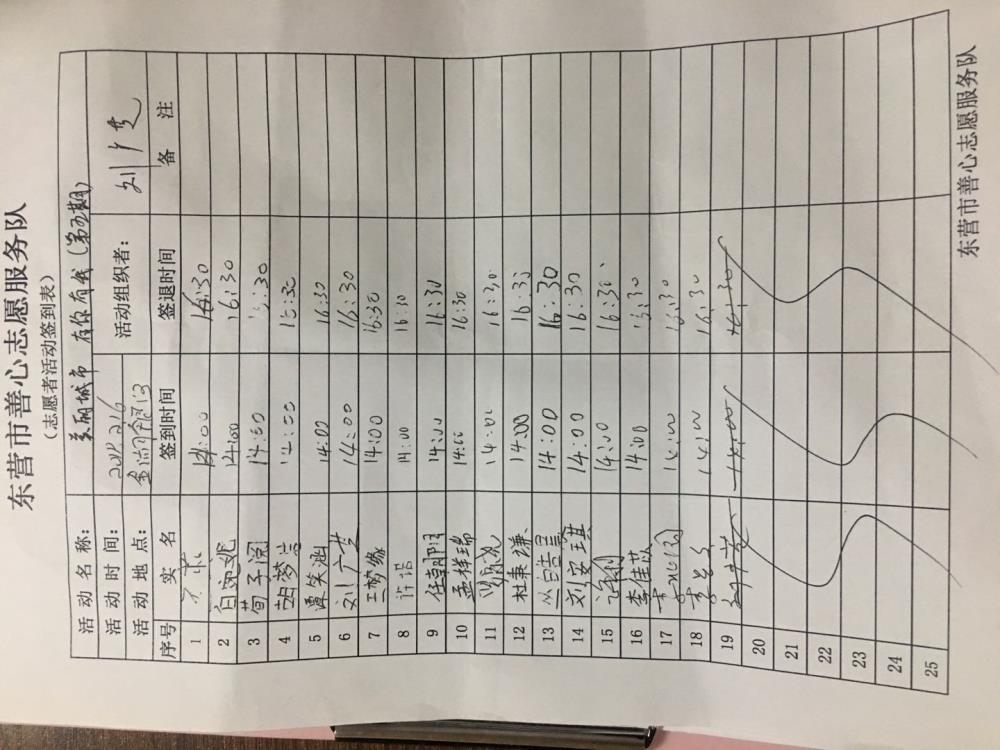 东营市善心志愿服务队
（志愿者活动签到表）
活动名称： 美丽城市 有你有我（第五期）
活动时间： 活动组织者：
活动地点：
序号 实名 签到时间 签退时间 备注
1 14:00 16:30
2 14:00 16:30
3 荀子阅 14:00 16:30
4 胡梦 14:00 16:30
5 谭笑涵 14:00 16:30
6 14:00 16:30
7 王梦缘 14:00 16:30
8 许诺 14:00 16:30
9 任朝阳 14:00 16:30
10 孟样瑞 14:00 16:30
11 14:00 16:30
12 杜秉谦 14:00 16:30
13 14:00 16:30
14 刘安琪 14:00 16:30
15 14:00 16:30
16 李佳苡 14:00 16:30
17 14:00 16:30
18 14:00 16:30
19 14:00 16:30
20
21
22
23
24
25
东营市善心志愿服务队